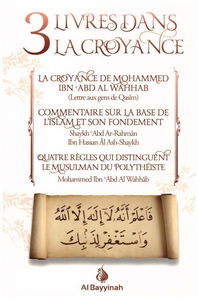 3 LIVRES DANS
LA CROYANCE
LA CROYANCE DE MOHAMMED
IBN 'ABD AL WAHHAB
(Lettre aux gens de Qasîm)
COMMENTAIRE SUR LA BASE DE
L'ISLAM ET SON FONDEMENT
Shaykh 'Abd Ar-Rahmân
Ibn Hassan Âl Ash-Shaykh
QUATRE RÈGLES QUI DISTINGUENT
LE MUSULMAN DU POLYTHÉISTE
Mohammed Ibn 'Abd Al Wahhâb
فَاعْلَمْ أَنَّهُ لَا إِلَٰهَ إِلَّا اللَّهُ
وَاسْتَغْفِرْ لِذَنبِكَ
Al Bayyinah